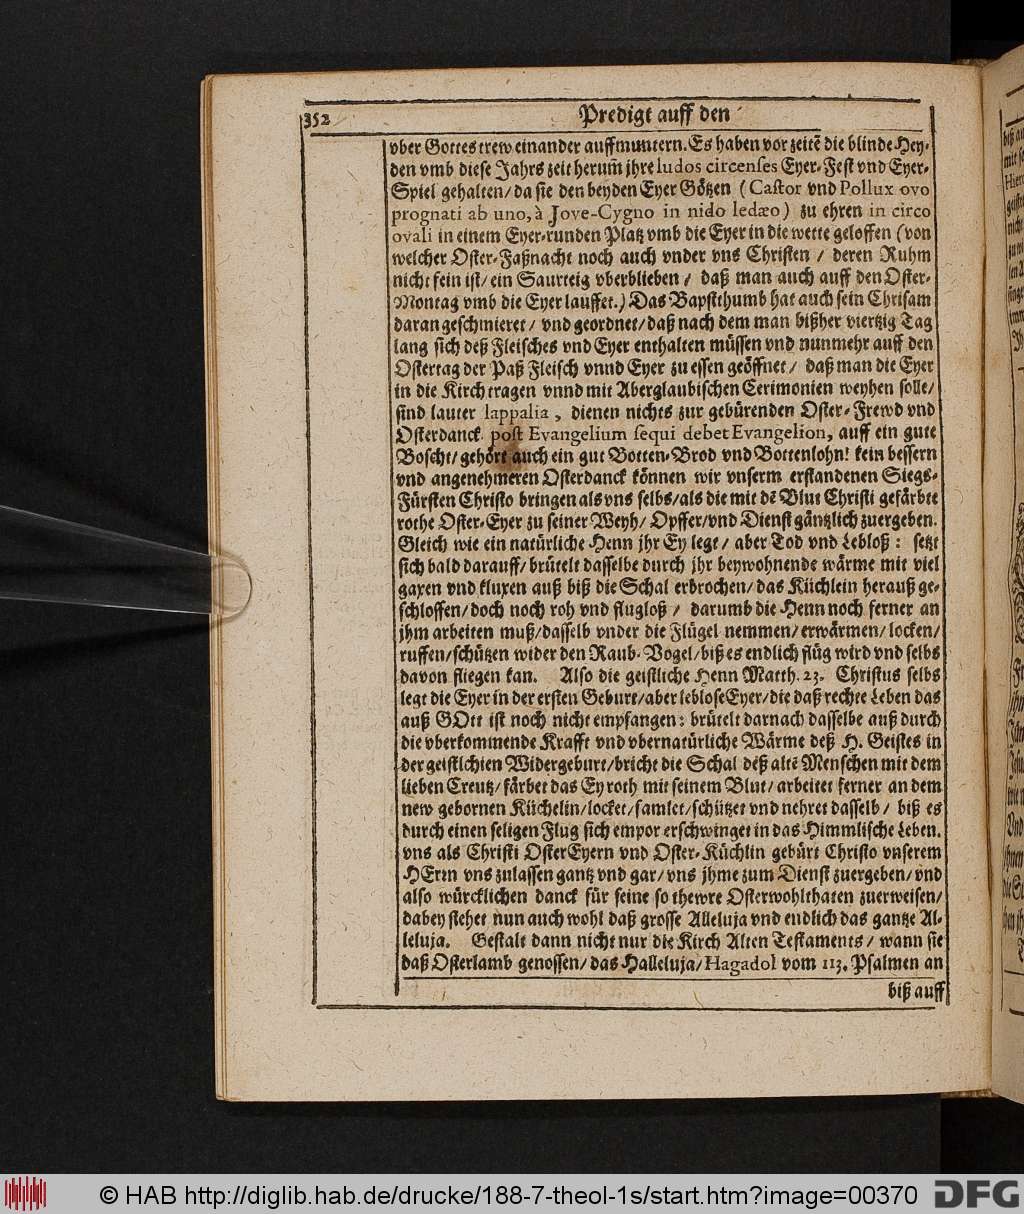 352
Predigt auff den
vber Gottes trew einander auffmuntern. Es haben vor zeitē die blinde Hey-
den vmb diese Jahrs zeit herum̃ jhre ludos circenses Eyer-Fest vnd Eyer-
Spiel gehalten/ da sie den beyden Eyer Götzen (Castor vnd Pollux ovo
prognati ab uno, à Jove-Cygno in nido ledæo) zu ehren in circo
ovali in einem Eyer-runden Platz vmb die Eyer in die wette geloffen (von
welcher Oster-Faßnacht noch auch vnder vns Christen / deren Ruhm
nicht fein ist/ ein Saurteig vberblieben / daß man auch auff den Oster-
Montag vmb die Eyer lauffet.) Das Bapstthumb hat auch sein Chrisam
daran geschmieret/ vnd geordnet/ daß nach dem man bißher viertzig Tag
lang sich deß Fleisches vnd Eyer enthalten müssen vnd nunmehr auff den
Ostertag der Paß Fleisch vnnd Eyer zu essen geöffnet/ daß man die Eyer
in die Kirch tragen vnnd mit Aberglaubischen Cerimonien weyhen solle/
sind lauter lappalia, dienen nichts zur gebürenden Oster-Frewd vnd
Osterdanck. post Evangelium sequi debet Evangelion, auff ein gute
Boscht/ gehört auch ein gut Botten-Brod vnd Bottenlohn! kein bessern
vnd angenehmeren Osterdanck können wir vnserm erstandenen Siegs-
Fürsten Christo bringen als vns selbs/ als die mit dē Blut Christi gefärbte
rothe Oster-Eyer zu seiner Weyh/ Opffer/ vnd Dienst gäntzlich zuergeben.
Gleich wie ein natürliche Henn jhr Ey legt/ aber Tod vnd Lebloß: setzt
sich bald darauff/ brütelt dasselbe durch jhr beywohnende wärme mit viel
garen vnd kluxen auß biß die Schal erbrochen/ das Küchlein herauß ge-
schlossen/ doch noch roh vnd flugloß / darumb die Henn noch ferner an
jhm arbeiten muß/ dasselb vnder die Flügel nemmen/ erwärmen/ locken/
ruffen/ schützen wider den Raub-Vogel/ biß es endlich flüg wird vnd selbs
davon fliegen kan. Also die geistliche Henn Matth. 23. Christus selbs
legt die Eyer in der ersten Geburt/ aber leblose Eyer/ die daß rechte Leben das
auß GOtt ist noch nicht empfangen: brütelt darnach dasselbe auß durch
die vberkommende Krafft vnd vbernatürliche Wärme deß H. Geistes in
der geistlchien Widergeburt/ bricht die Schal deß altē Menschen mit dem
lieben Creutz/ färbet das Ey roth mit seinem Blut/ arbeitet ferner an dem
new gebornen Küchelin/ locket/ samlet/ schützet vnd nehret dasselb/ biß es
durch einen seligen Flug sich empor erschwinget in das Himmlische Leben.
vns als Christi OsterEyern vnd Oster-Küchlin gebürt Christo vnserem
HErrn vns zulassen gantz vnd gar/ vns jhme zum Dienst zuergeben/ vnd
also würcklichen danck für seine so thewre Osterwohlthaten zuerweisen/
dabey stehet nun auch wohl daß grosse Alleluja vnd endlich das gantze Al-
leluja. Gestalt dann nicht nur die Kirch Alten Testaments/ wann sie
daß Osterlamb genossen/ das Halleluja/ Hagadol vom 113. Psalmen an
biß auff
© HAB http://diglib.hab.de/drucke/188-7-theol-1s/start.htm?image=00370
DFG